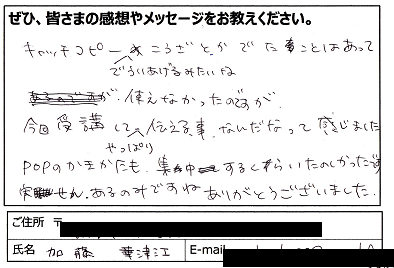 ぜひ、皆さまの感想やメッセージをお教えください。
キャッチコピー こうざとかでた事ことはあって
でういあげるみたいな
が、使えなかったのですが、
今回受講して、伝える事、なんだなって感じました
やっぱり
POPのかきかたも、集中するくらいたのしかったです
あるのみですね ありがとうございました。
ご住所 〒
氏名 加藤 華津江 E-mail